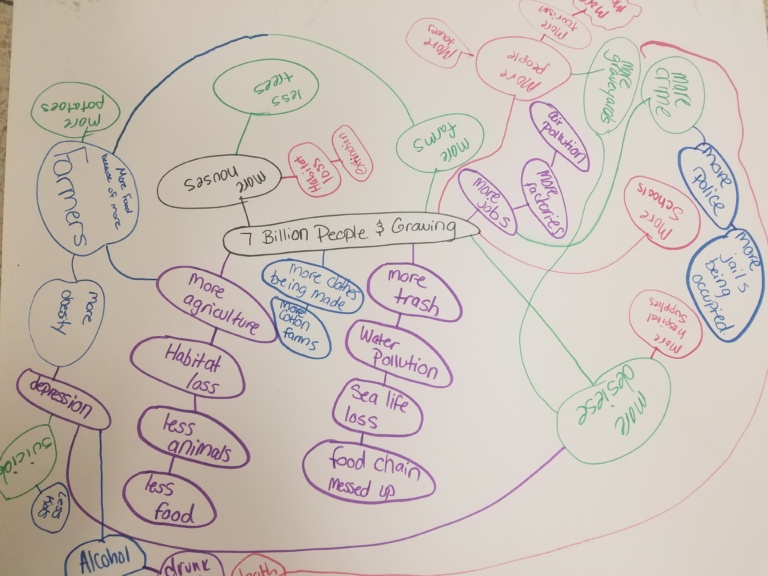 More
more
tourism
More
taxes
More
people
more
graveyards
more
crime
more
potatoes
less
trees
more
farms
air
pollution
Farmers
More food
because of more
more
houses
Habitat
loss
extinction
more
jobs
more
factories
more
police
More
Schools
more
jails
being
occupied
7 Billion People & Growing
more
agriculture
more clothes
being made
more
cotton
farms
more
trash
more
obesity
more
hospital
supplies
Habitat
loss
Water
Pollution
depression
Sea life
loss
more
desiese
less
animals
food chain
messed up
suicide
Less
Kids
less
food
Alcohol
drunk